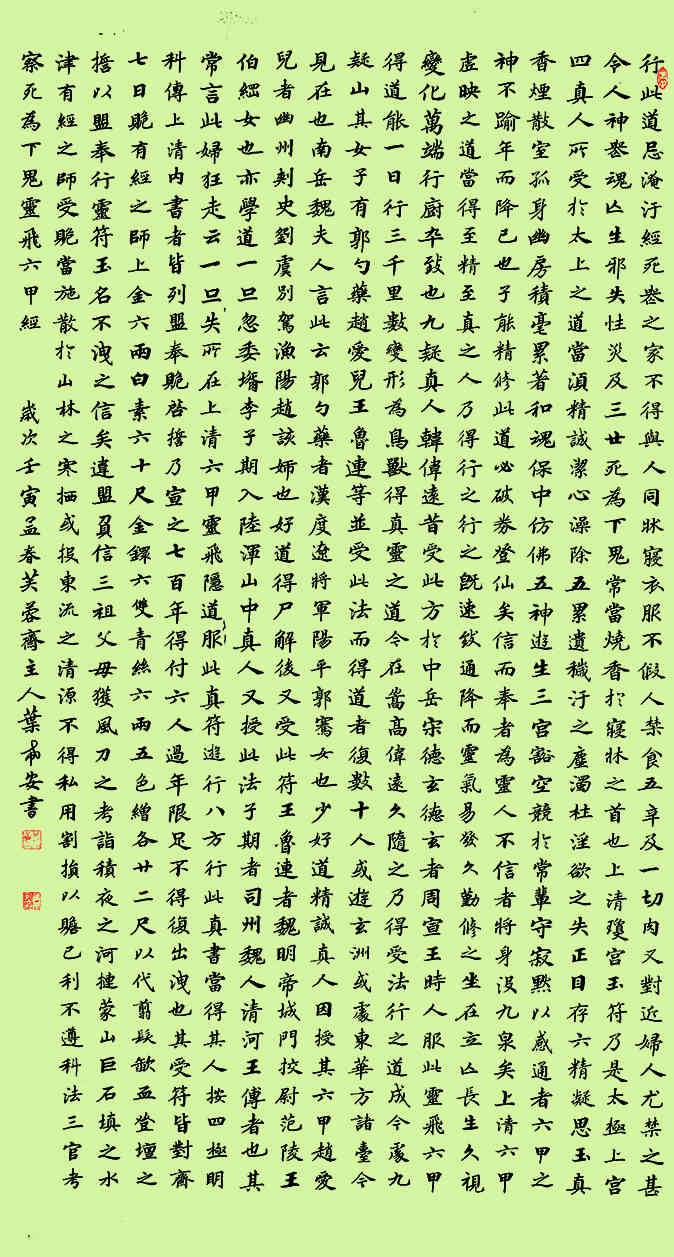 行此道忌淹汙經死喪之家不得與人同牀寢衣服不假人禁食五辛及一切肉又對近婦人尤禁之甚
令人神喪魂亡生邪失性災及三世死為下鬼常當燒香於寢牀之首也上清瓊宮玉符乃是太極上宮
四真人所受於太上之道當須精誠潔心澡除五累遺穢汙之塵濁杜淫欲之失正目存六精凝思玉真
香煙散室孤身幽房積毫累著和魂保中仿佛五神遊生三宮豁空競於常輩守寂默以感通者六甲之
神不踰年而降已也子能精修此道必破券登仙矣信而奉者為靈人不信者將身沒九泉矣上清六甲
虛映之道當得至精至真之人乃得行之行之既速致通降而靈氣易發久勤修之坐在立亡長生久視
變化萬端行廚卒致也九疑真人韓偉遠昔受此方於中岳宋德玄德玄者周宣王時人服此靈飛六甲
得道能一日行三千里數變形為鳥獸得真靈之道今在嵩高偉遠久隨之乃得受法行之道成今處九
疑山其女子有郭勺藥趙愛兒王魯連等並受此法而得道者復數十人或遊玄洲或處東華方諸臺今
見在也南岳魏夫人言此云郭勺藥者漢度遼將軍陽平郭騫女也少好道精誠真人因授其六甲趙愛
兒者幽州刺史劉虞別駕漁陽趙該姊也好道得尸解後又受此符王魯連者魏明帝城門校尉范陵王
伯綱女也亦學道一旦忽委壻李子期入陸渾山中真人又授此法子期者司州魏人清河王傅者也其
常言此婦狂走云一旦失所在上清六甲靈飛隱道服此真符遊行八方行此真書當得其人按四極明
科傳上清內書者皆列盟奉貺啓誓乃宣之七百年得付六人過年限足不得復出洩也其受符皆對齊
七日貺有經之師上金六兩白素六十尺金鐶六雙青絲六兩五色繒各廿二尺以代翦髮歃血登壇之
誓以盟奉行靈符玉名不洩之信矣違盟負信三祖父母獲風刀之考詣積夜之河揵蒙山巨石填之水
津有經之師受貺當施散於山林之寒栖或投東流之清源不得私用割損以贍己利不遵科法三官考
察死為下鬼靈飛六甲經
歲次壬寅孟春芙蓉齋主人葉帝安書